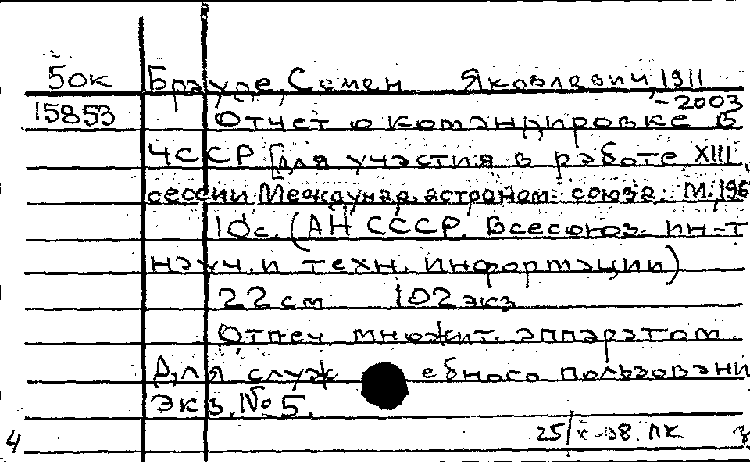 5ок Брауде, Семен Яковлевич, 1911
-2003
15853 Отчет о командировке в
ЧССР [для участия в работе XIII
сессии Междунар. астроном. союза. М., 196
10с. (АН СССР. Всесоюз. ин-т
науч. и техн. информации)
22 см 102 экз
Отпеч. множит. аппаратом.
Для служебного пользовани
Экз. № 5.
ПК
4